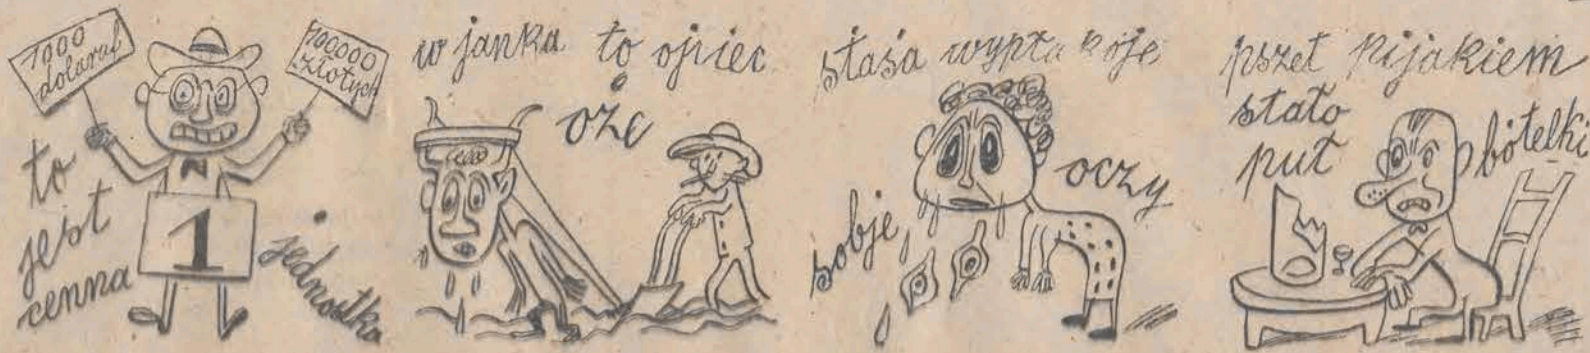 1000
dolaruf
100000
złotych
to
jest
cenna
1
jednostka
w janka to ojciec
oże
stasa wypłakóje
sobje
oczy
pszet pijakiem
stało
put
bótelki